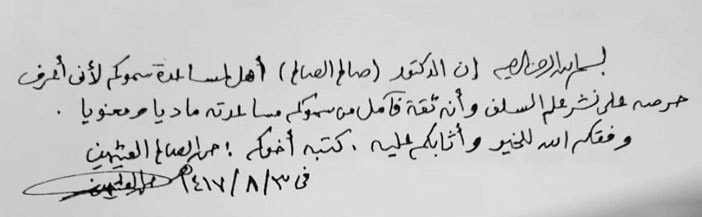 بسم الله الرحمن الرحيم إن الدكتور (صالح الصالح) أهل لمساعدة سموكم لأني أعرف
حرصه على نشر علم السلف وأنه ثقة فآمل من سموكم مساعدته ماديا ومعنويا .
وفقكم الله للخير وأثابكم عليه . كتبه أخوكم محمد الصالح العثيمين
في ١٤١٧/٨/٣